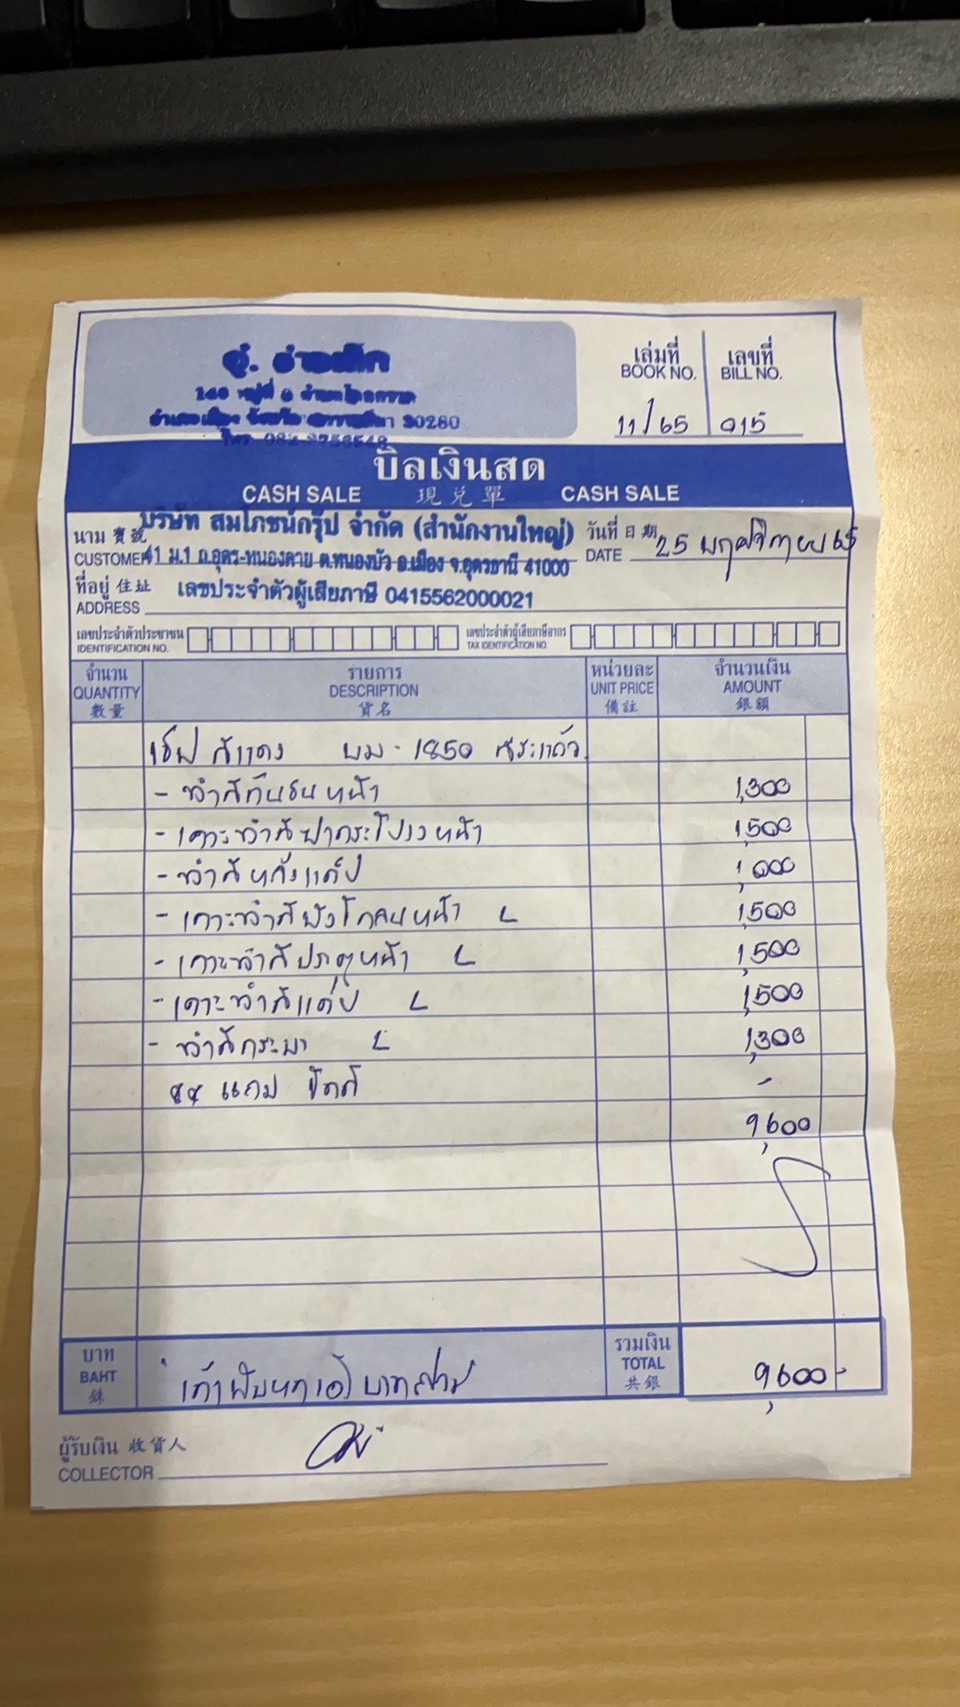 อู่.
30280
เล่มที่
BOOK NO.
เลขที่
BILL NO.
11/65
015
บิลเงินสด
CASH SALE 現兌單 CASH SALE
นาม 寶號
CUSTOMER
บริษัท สมโภชน์กรุ๊ป จำกัด (สำนักงานใหญ่)
41 ม.1 ถ.อุดร-หนองคาย ต.หนองบัว อ.เมือง จ.อุดรธานี 41000
วันที่ 日期
DATE
25 พฤศจิกายน 65
ที่อยู่ 住址
ADDRESS
เลขประจำตัวผู้เสียภาษี 0415562000021
เลขประจำตัวประชาชน
IDENTIFICATION NO.
เลขประจำตัวผู้เสียภาษีอากร
TAX IDENTIFICATION NO.
จำนวน
QUANTITY
數量
รายการ
DESCRIPTION
貨名
หน่วยละ
UNIT PRICE
備註
จำนวนเงิน
AMOUNT
銀額
สีแดง 1850 สระแก้ว
- ทำสีกันชนหน้า 1,300
- เคาะทำสีฝากระโปรงหน้า 1,500
- ทำสีหลังแค๊ป 1,000
- เคาะทำสีบังโคลนหน้า L 1,500
- เคาะทำสีประตูหน้า L 1,500
- เคาะทำสีแค๊ป L 1,500
- ทำสีกระบะ L 1,300
แถม ขัดสี -
9,600
บาท
BAHT
銖
เก้าพันหกร้อยบาทถ้วน
รวมเงิน
TOTAL
共銀
9,600-
ผู้รับเงิน 收貨人
COLLECTOR